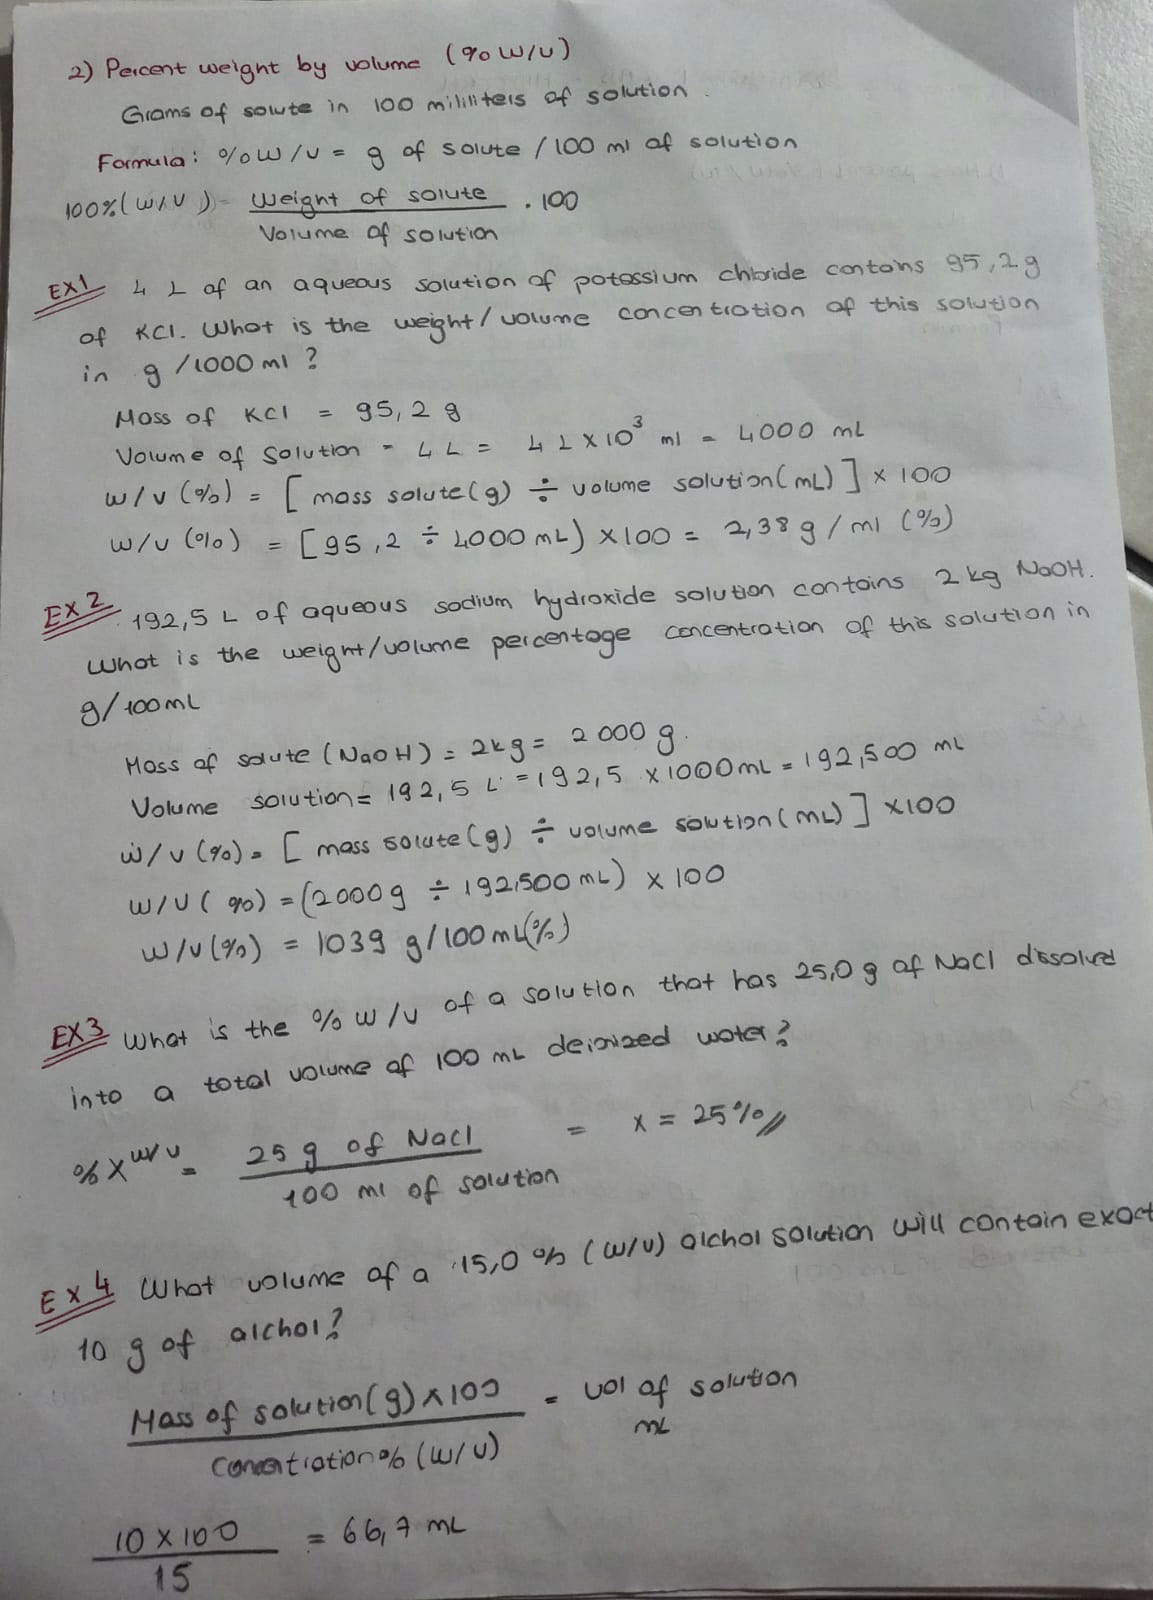 2) Percent weight by volume (% W/V)
Grams of solute in 100 mililiters of solution.
Formula: % W/V = g of solute / 100 ml of solution
100%(W/V) = Weight of solute . 100
Volume of solution
EX1 4 L of an aqueous solution of potassium chloride contains 95,2 g
of KCl. What is the weight/volume concentration of this solution
in g/1000 ml?
Mass of KCl = 95,2 g
Volume of Solution = 4 L = 4 L x 10³ ml = 4000 mL
w/v (%) = [mass solute(g) ÷ volume solution(mL)] x 100
w/v (%) = [95,2 ÷ 4000 mL) x 100 = 2,38 g/ml (%)
EX 2 192,5 L of aqueous sodium hydroxide solution contains 2 kg NaOH.
What is the weight/volume percentage concentration of this solution in
g/100mL
Mass of solute (NaOH) = 2kg = 2000 g.
Volume solution = 192,5 L = 192,5 x 1000mL = 192,500 mL
w/v (%) = [mass solute(g) ÷ volume solution(mL)] x100
W/V (%) = (2000g ÷ 192,500 mL) x 100
W/V(%) = 1039 g/100 mL(%)
EX3 What is the % w/v of a solution that has 25,0 g of NaCl dissolved
into a total volume of 100 mL deionized water?
% X w/v = 25 g of NaCl = x = 25%
100 ml of solution
EX 4 What volume of a 15,0 % (W/V) alchol solution will contain exact
10 g of alchol?
Mass of solution(g) x 100 = vol of solution
Concentration % (W/V) mL
10 x 100 = 66,7 mL
15